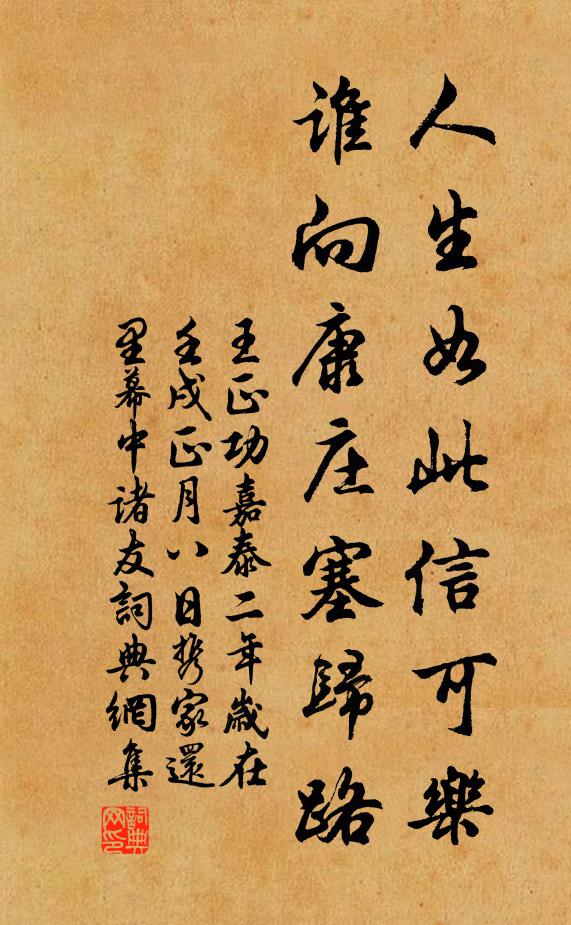 人生如此信可樂
誰向康庄塞歸路
王正功嘉泰二年歲在
壬戌正月八日携家還
里幕中諸友詞典網集
詞典网印